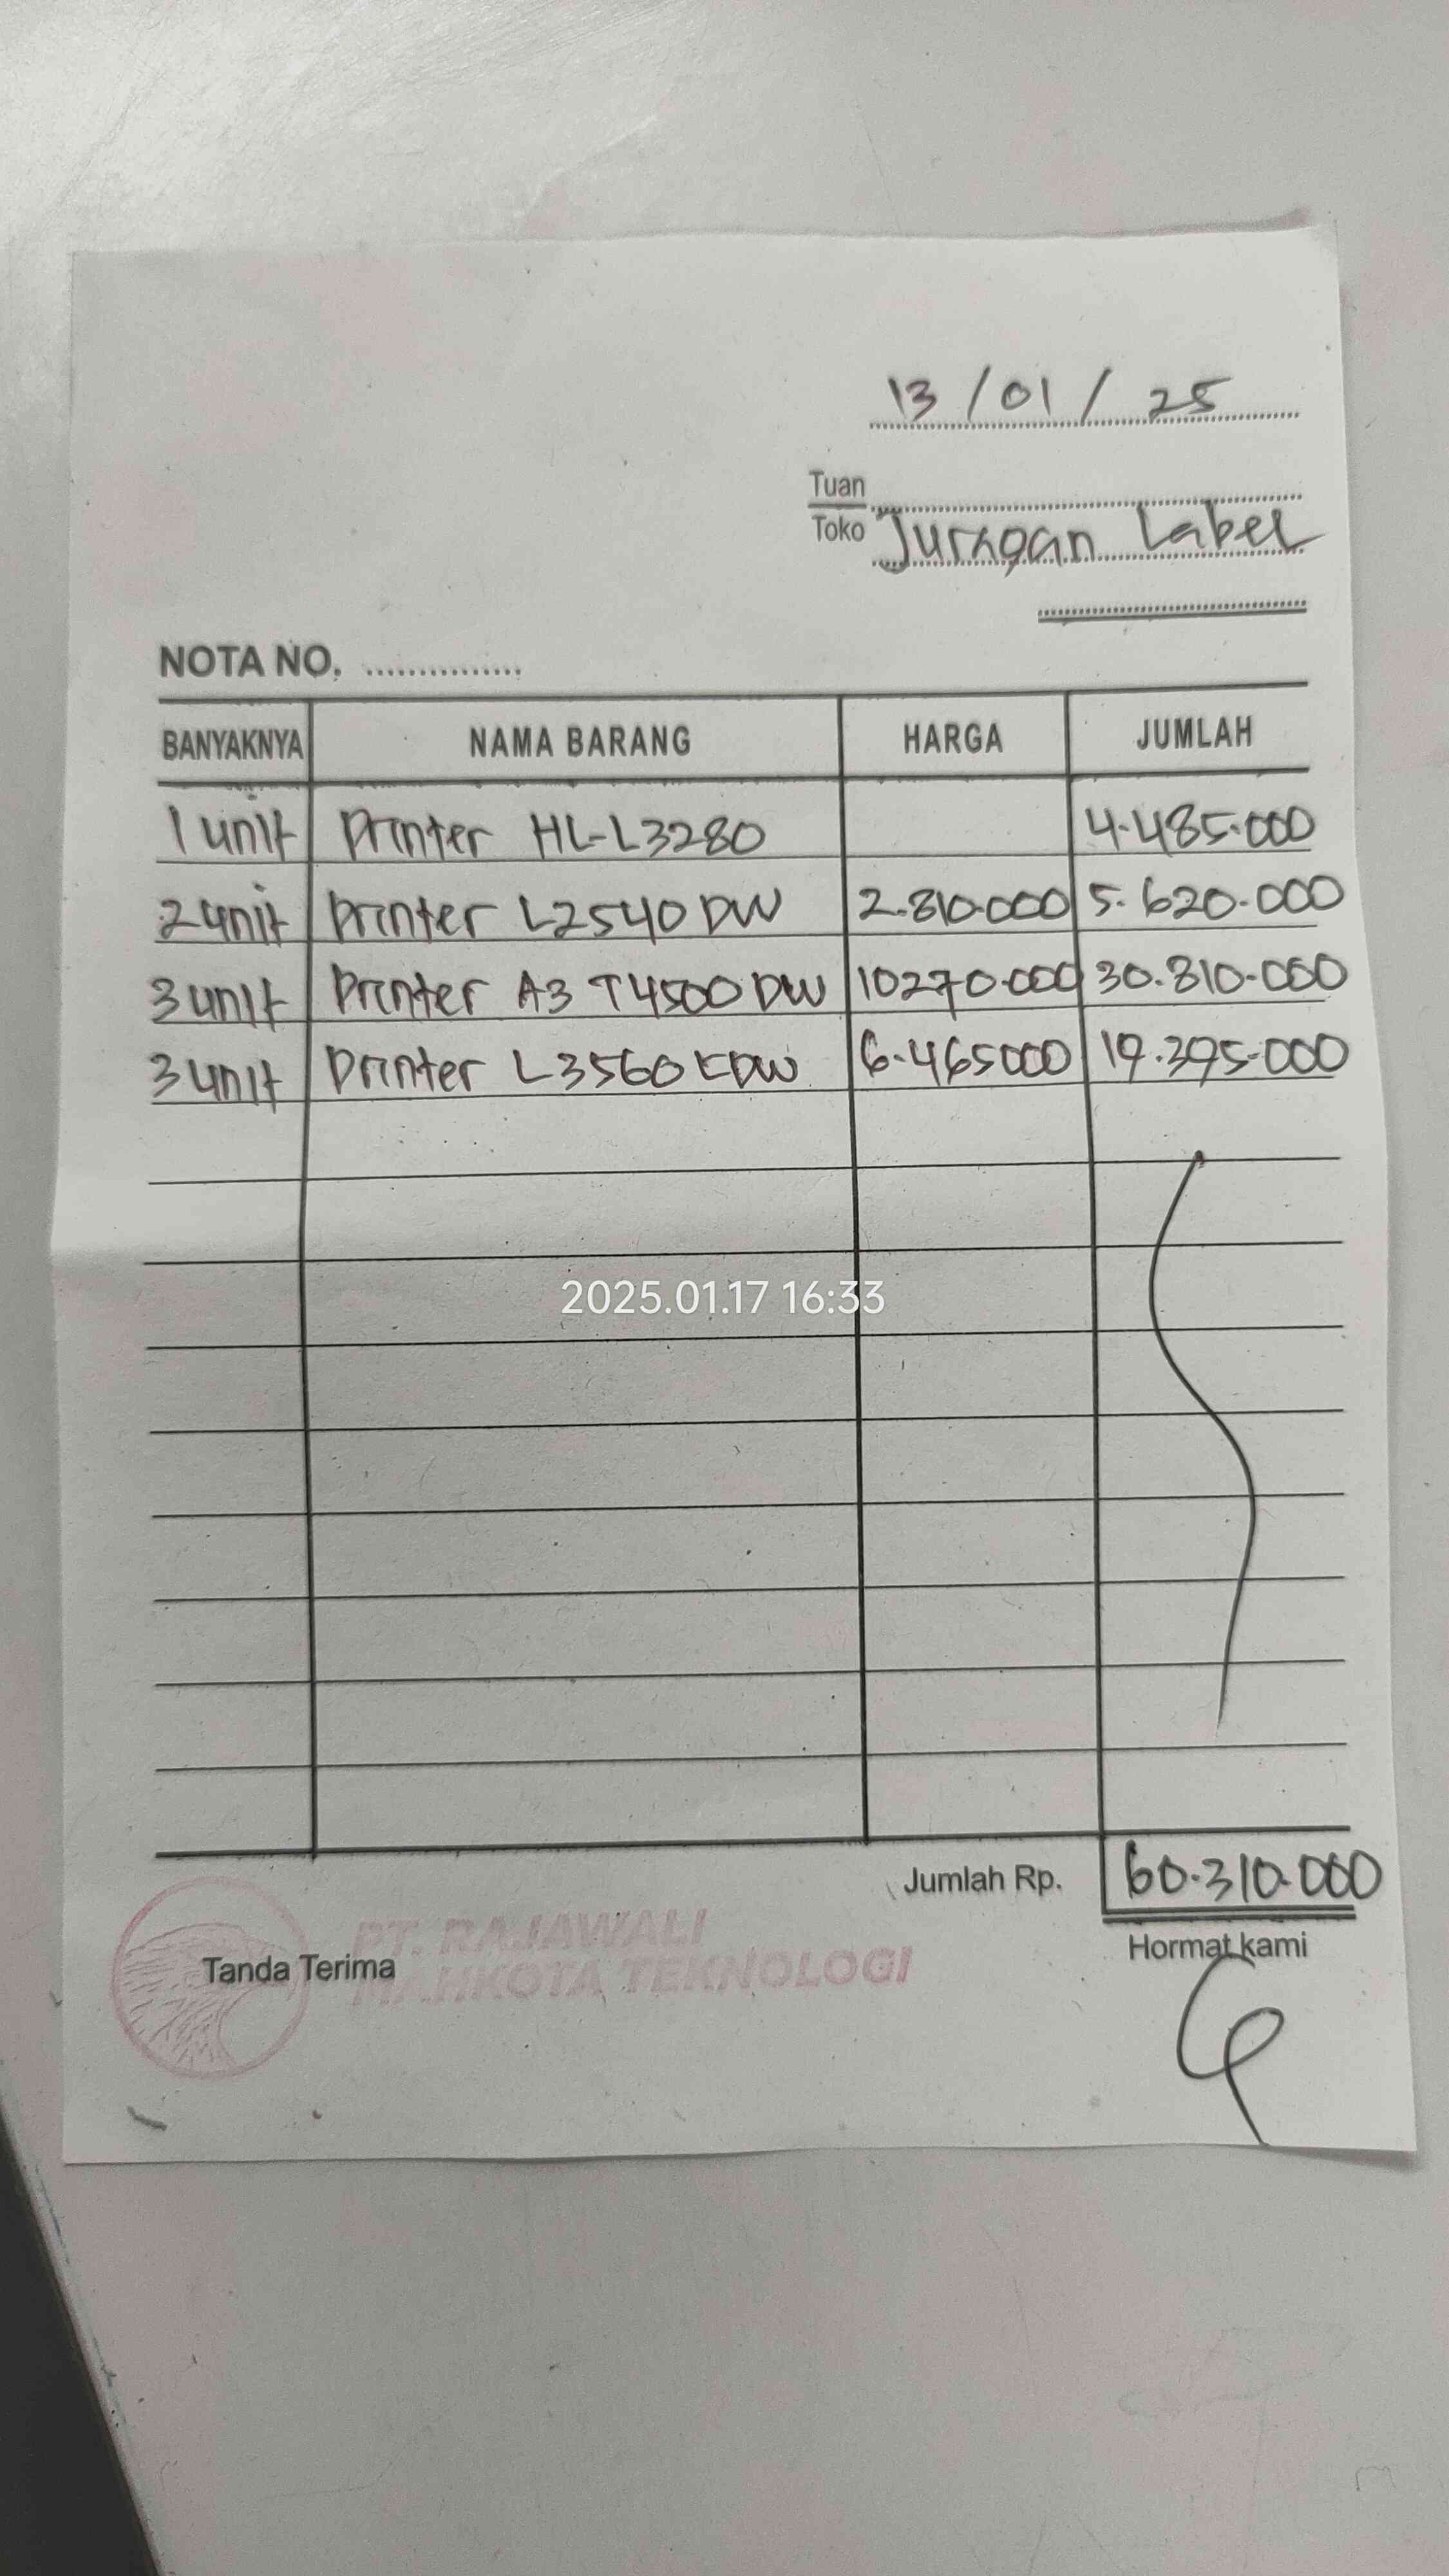 13 / 01 / 25
Tuan
Toko Juragan Label
NOTA NO. ...............
BANYAKNYA NAMA BARANG HARGA JUMLAH
1 unit Printer HL-L3280 4.485.000
2 unit Printer L2540 DW 2.810.000 5.620.000
3 unit Printer A3 T4500 DW 10270.000 30.810.000
3 unit Printer L3560 CDW 6.465000 19.395.000
2025.01.17 16:33
Jumlah Rp. 60.310.000
PT. RAJAWALI
MAHKOTA TEKNOLOGI
Tanda Terima Hormat kami